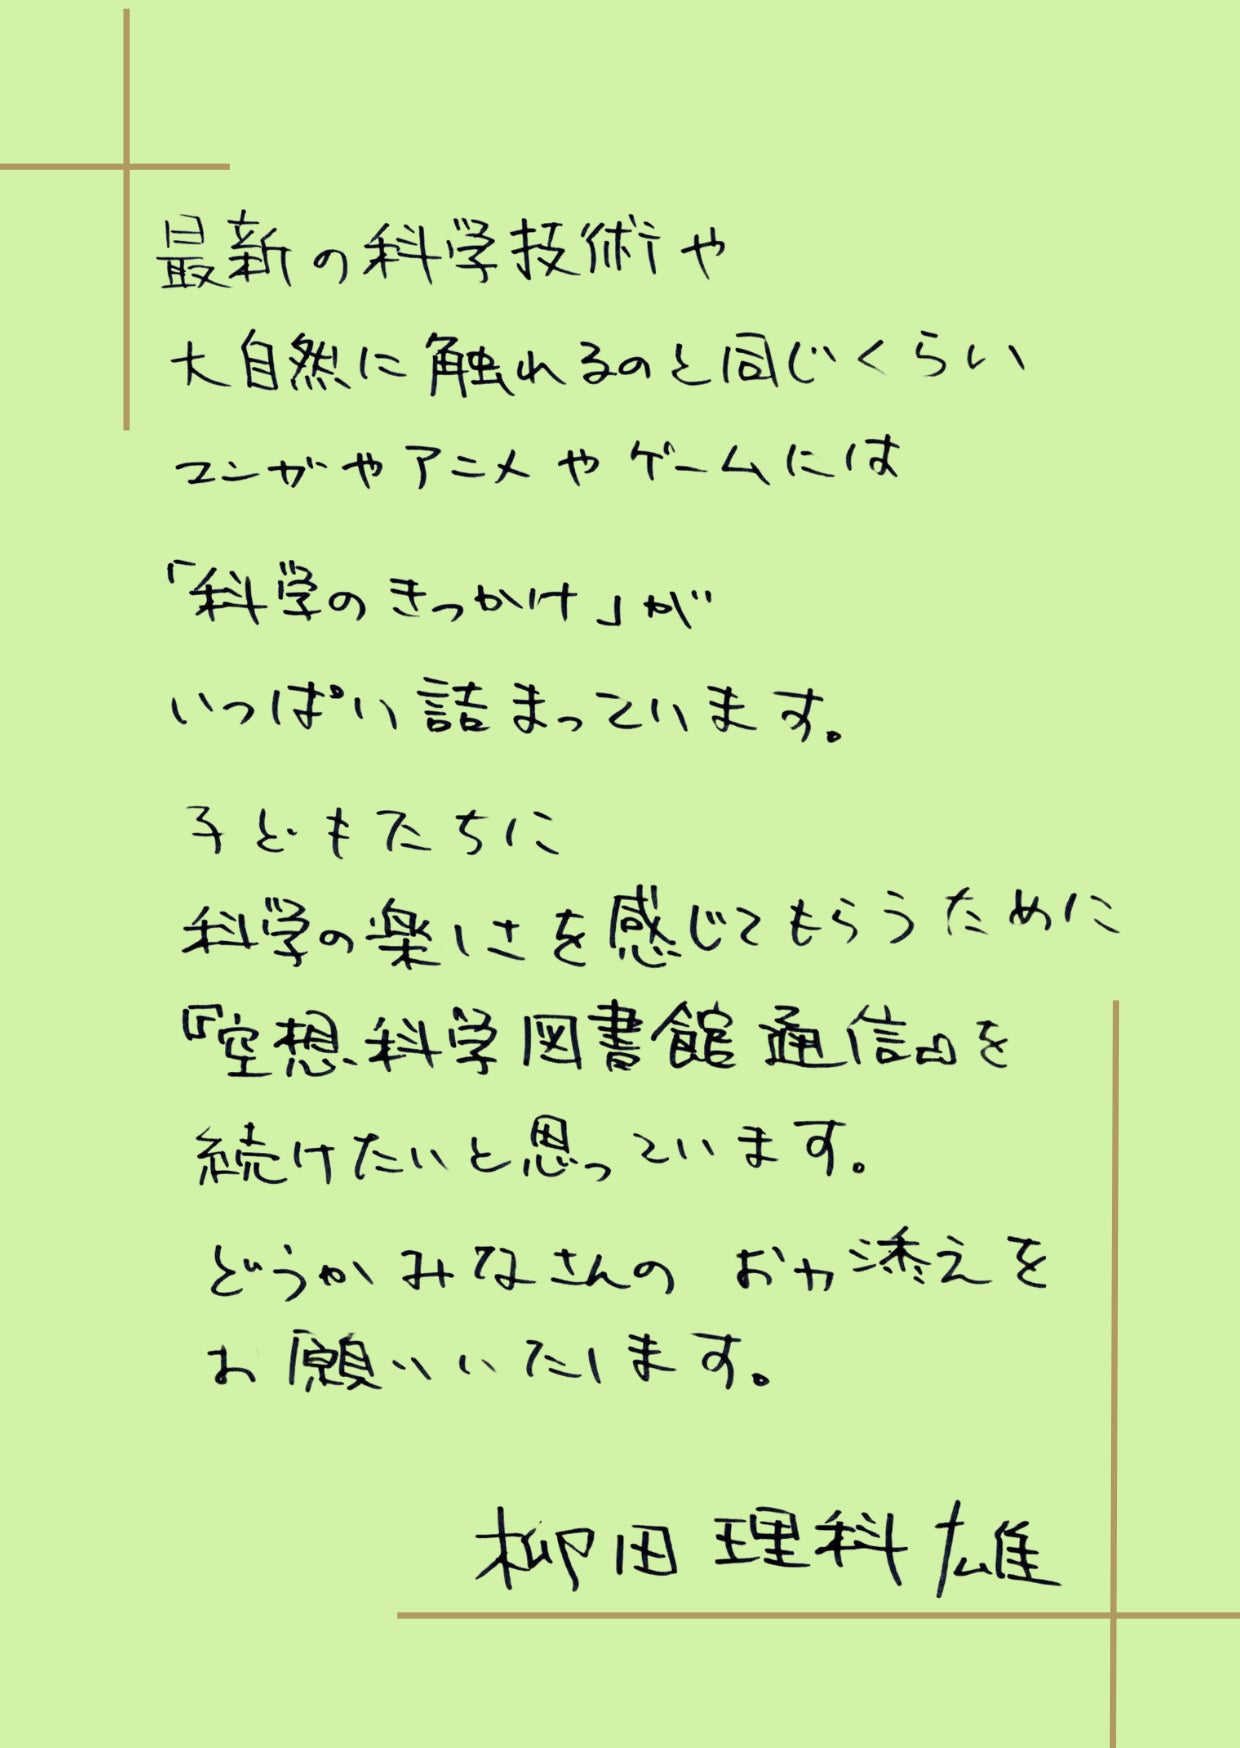 最新の科学技術や
大自然に触れるのと同じくらい
マンガやアニメやゲームには
「科学のきっかけ」が
いっぱい詰まっています。
子どもたちに
科学の楽しさを感じてもらうために
『空想科学図書館通信』を
続けたいと思っています。
どうかみなさんの お力添えを
お願いいたします。
柳田理科雄